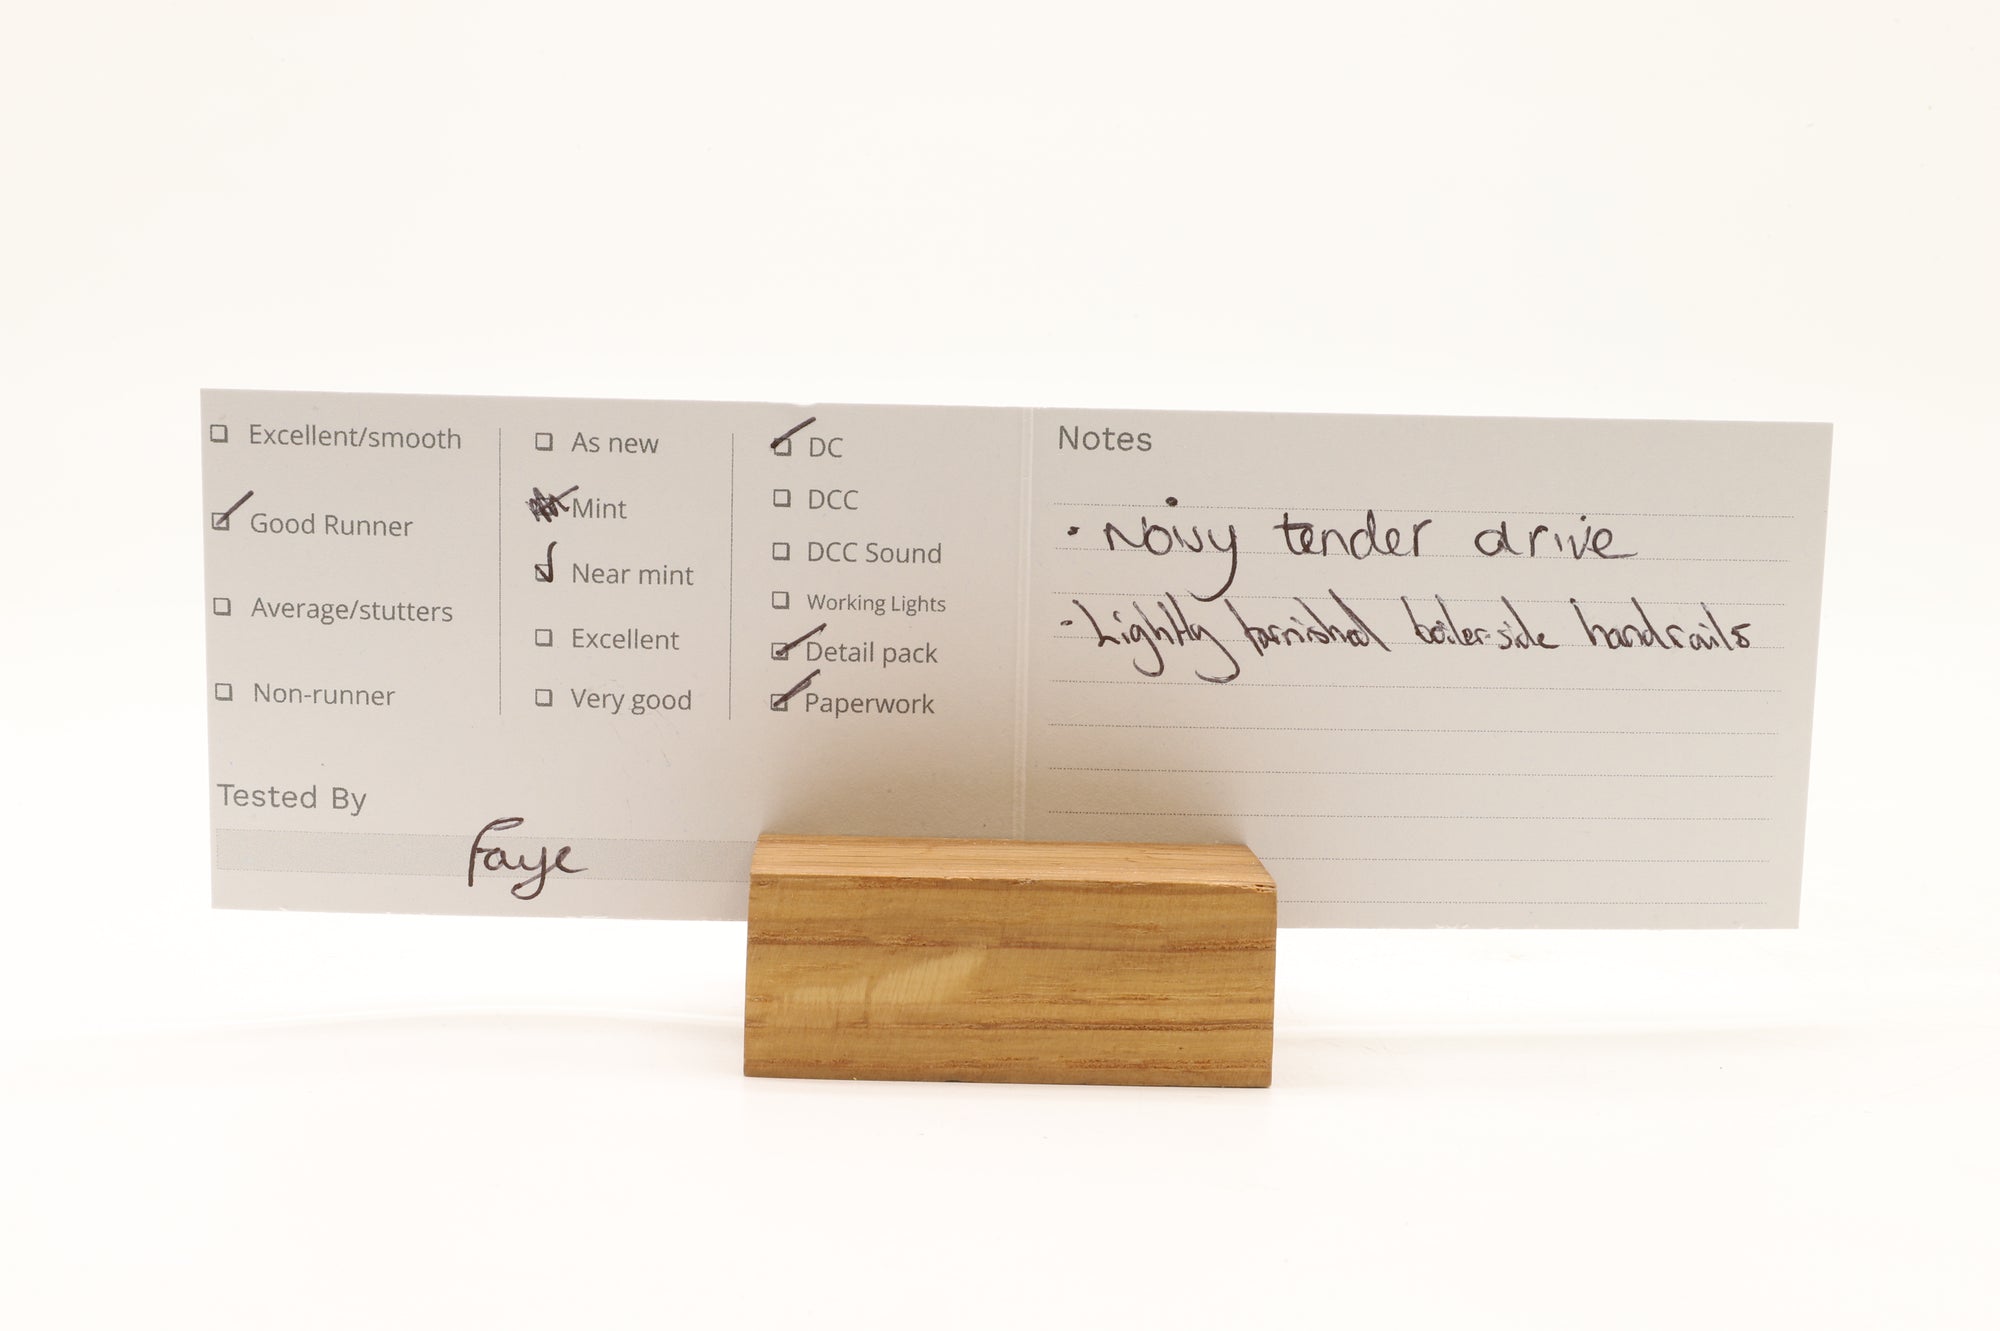 Excellent/smooth
Good Runner
Average/stutters
Non-runner
As new
Mint
Near mint
Excellent
Very good
DC
DCC
DCC Sound
Working Lights
Detail pack
Paperwork
Tested By
Faye
Notes
· Noisy tender drive
- Lightly tarnished boiler-side handrails